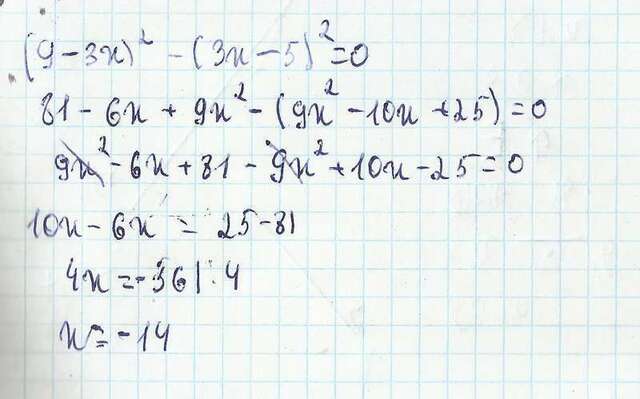 (9-3x)² - (3x-5)² = 0
81 - 6x + 9x² - (9x² - 10x + 25) = 0
9x² - 6x + 81 - 9x² + 10x - 25 = 0
10x - 6x = 25 - 81
4x = -56 | : 4
x = -14